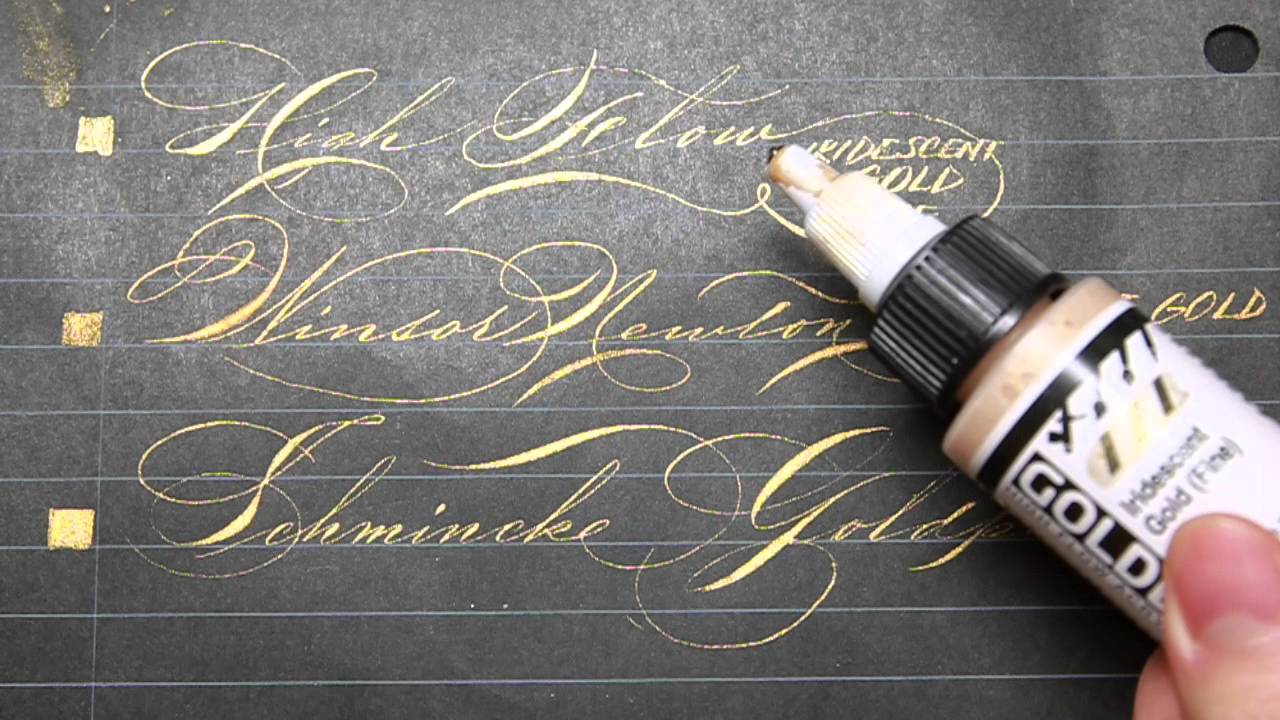 High Flow IRIDESCENT
GOLD
Winsor Newton GOLD
Schmincke
Iridescent
Gold (Fine)
GOLDE